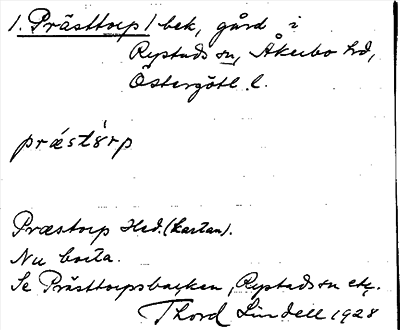 1. Prästtorp / bek, gård i
Rystads sn, Åkerbo hd,
Östergötl. l.
præ̀st'ŏrp
Præstorp Hed. (kartan).
Nu borta.
Se Prästtorpsbacken, Rystads sn etc.
Thord Lindell 1928